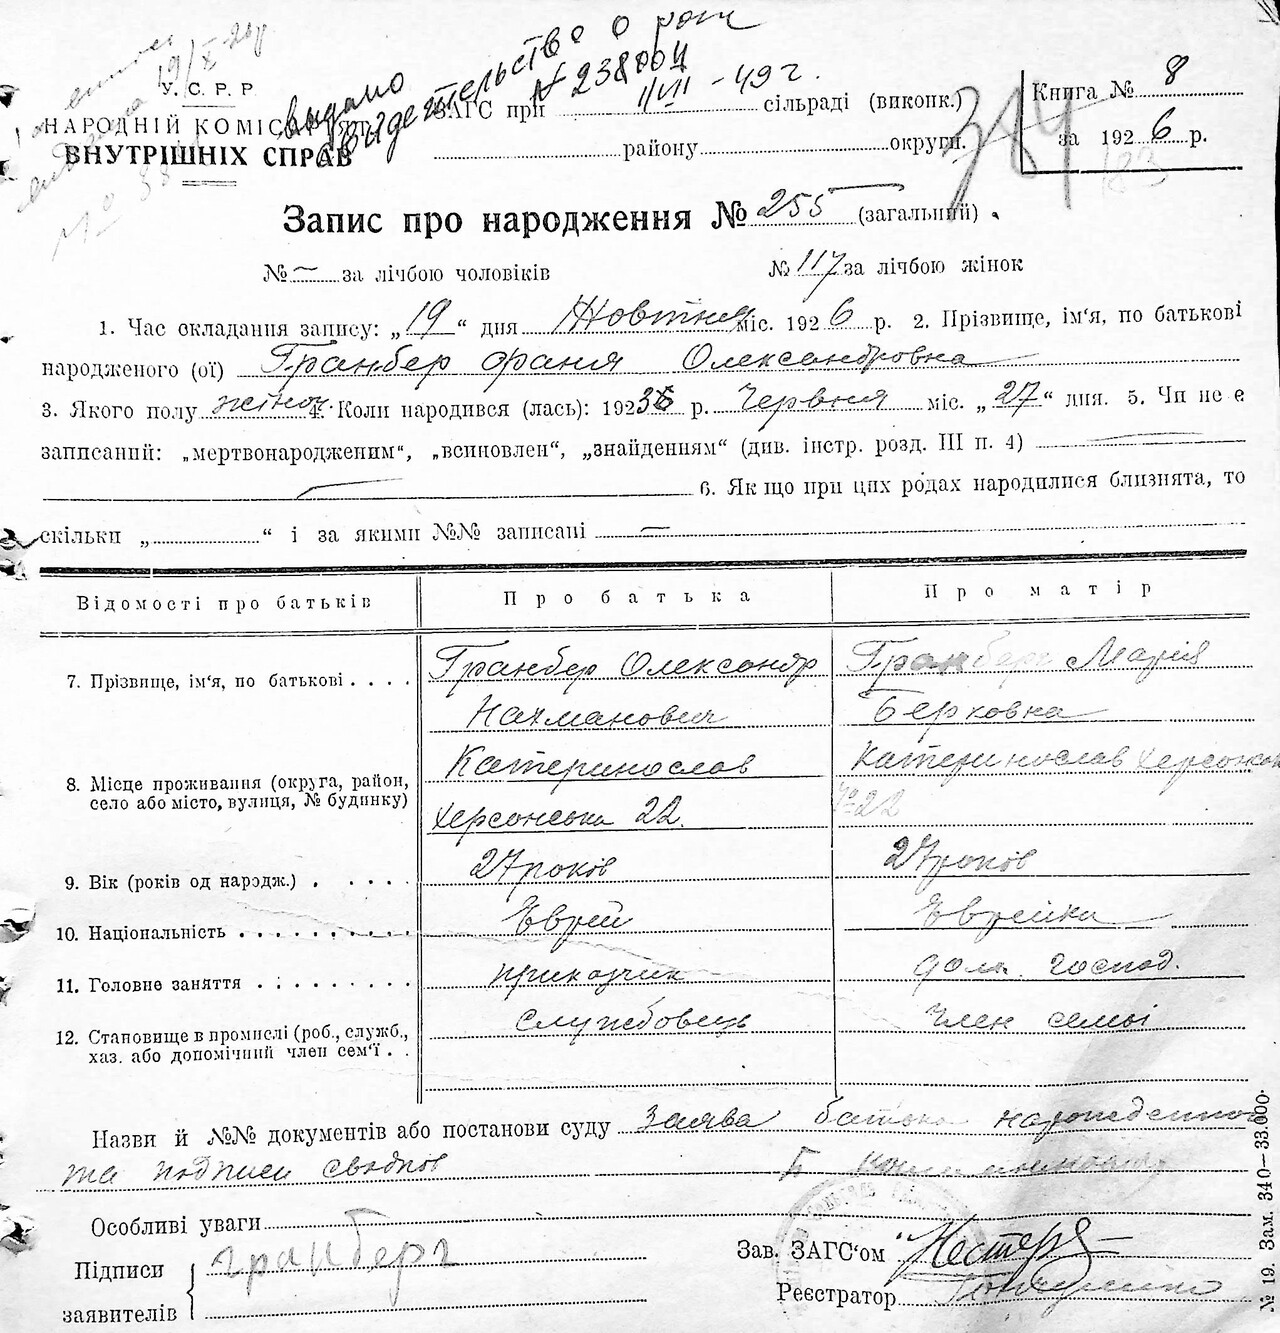 видано
свидетельство о рож
N 238004
11/VII - 49 г.
19/X-26р
У. С. Р. Р.
НАРОДНІЙ КОМІС
ВНУТРІШНІХ СПРАВ
ЗАГС при сільраді (виконк.)
району округи.
344
Книга № 8
за 1926 р.
183
Запис про народження № 255 (загальний)
№ — за лічбою чоловіків № 117 за лічбою жінок
1. Час складання запису: „19“ дня Жовтня міс. 1926 р. 2. Прізвище, ім'я, по батькові
народженого (ої) Гранбер Фаня Олександровна
3. Якого полу жіноч. 4. Коли народився (лась): 192 р. Червня міс. „27“ дня. 5. Чи не є
записаний: „мертвонародженим“, „всиновлен“, „знайденням“ (див. інстр. розд. III п. 4) —
— 6. Якщо при цих родах народилися близнята, то
скільки „ “ і за якими №№ записані —
Відомості про батьків Про батька Про матір
7. Прізвище, ім'я, по батькові . . . . Гранбер Олександр Гранберг Марія
Нахманович Берковна
8. Місце проживання (округа, район, село або місто, вулиця, № будинку) Катеринослав Катеринослав Херсонськ
Херсонська 22. № 22
9. Вік (років од народж.) . . . . . 27 років 27 років
10. Національність . . . . . . . . . Єврей Єврейка
11. Головне заняття . . . . . . . . . приказчик дом. господ.
12. Становище в промислі (роб., службовець Член семьі
хаз. або допомічний член сем'ї . .
Назви й №№ документів або постанови суду Заява батька
та подписи сводков
Особливі уваги
Підписи
заявителів
гранберг
Зав. ЗАГС'ом
Реєстратор
№ 19. Зам. 340—33.000.